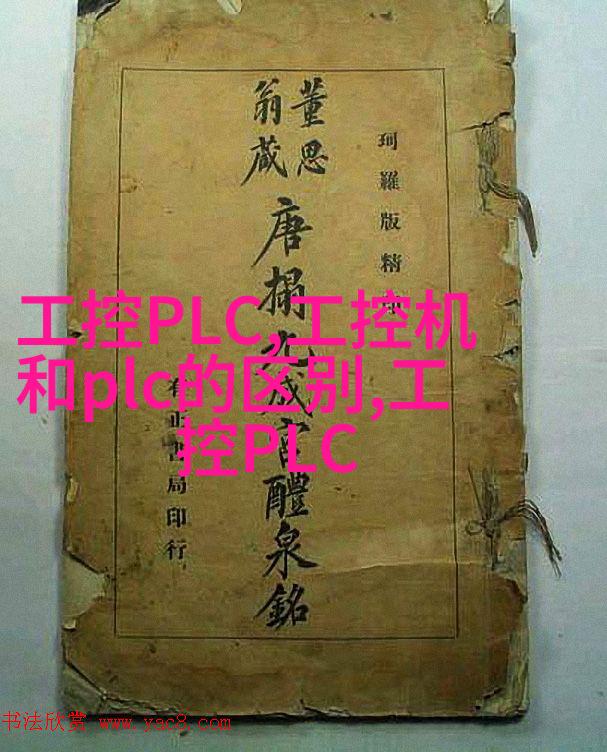 珂羅版精印
董思
翁藏
唐搨九成宮醴泉銘
有正書局印行
工控PLC,工控机
和plc的区别,工
控PLC
书法欣赏 www.yac8.com